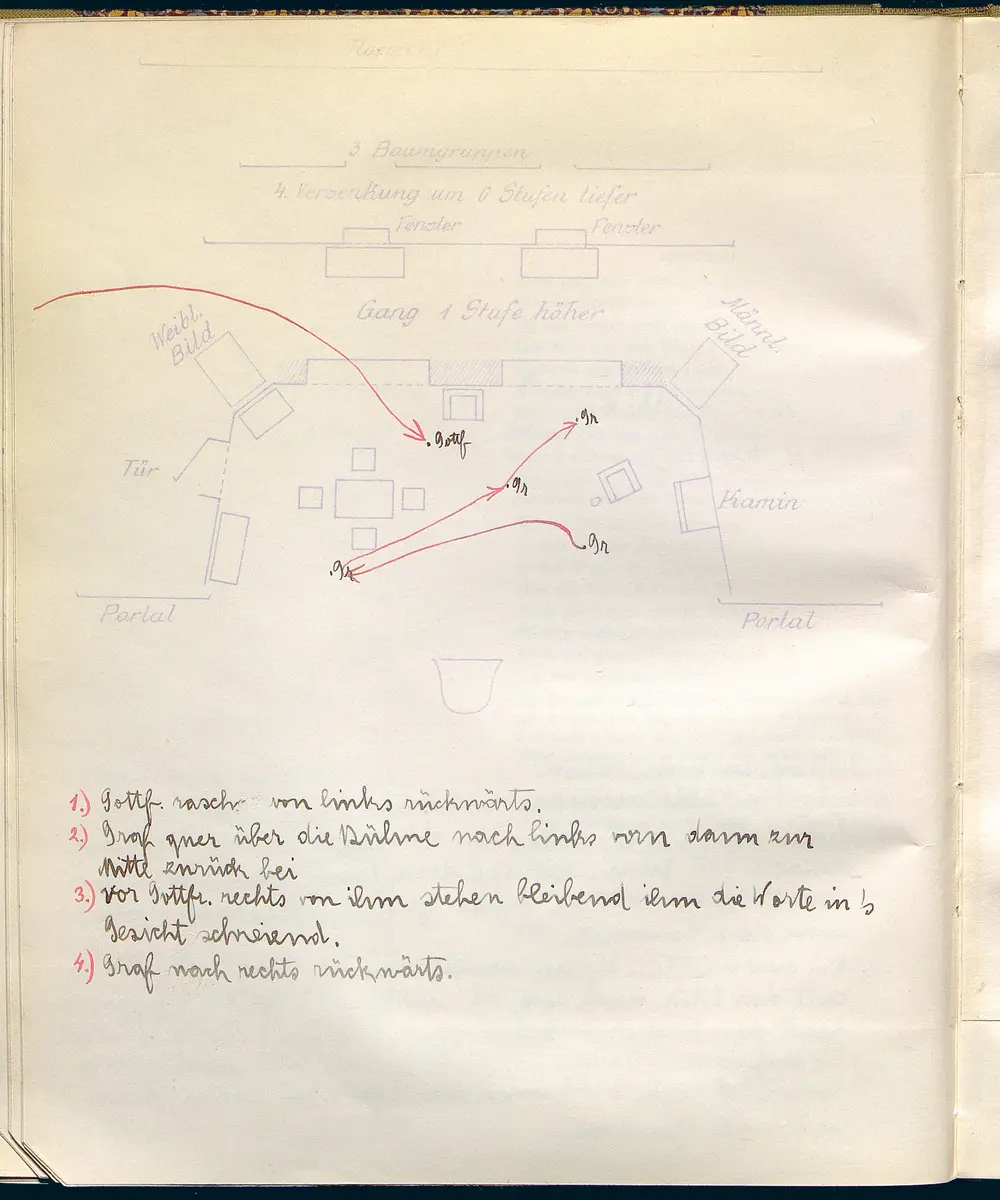 3 Baumgruppen
4. Versenkung um 6 Stufen tiefer
Fenster
Fenster
Gang 1 Stufe höher
Weibl.
Bild
Männl.
Bild
.Gottf
.Gr
.Gr
Tür
Kamin
.Gr
.Gr
Portal
Portal
1.) Gottf. rasch von links rückwärts.
2.) Graf quer über die Bühne nach links vorn dann zur
Mitte zurück bei
3.) vor Gottfr. rechts von ihm stehen bleibend ihm die Worte in's
Gesicht schreiend.
4.) Graf nach rechts rückwärts.